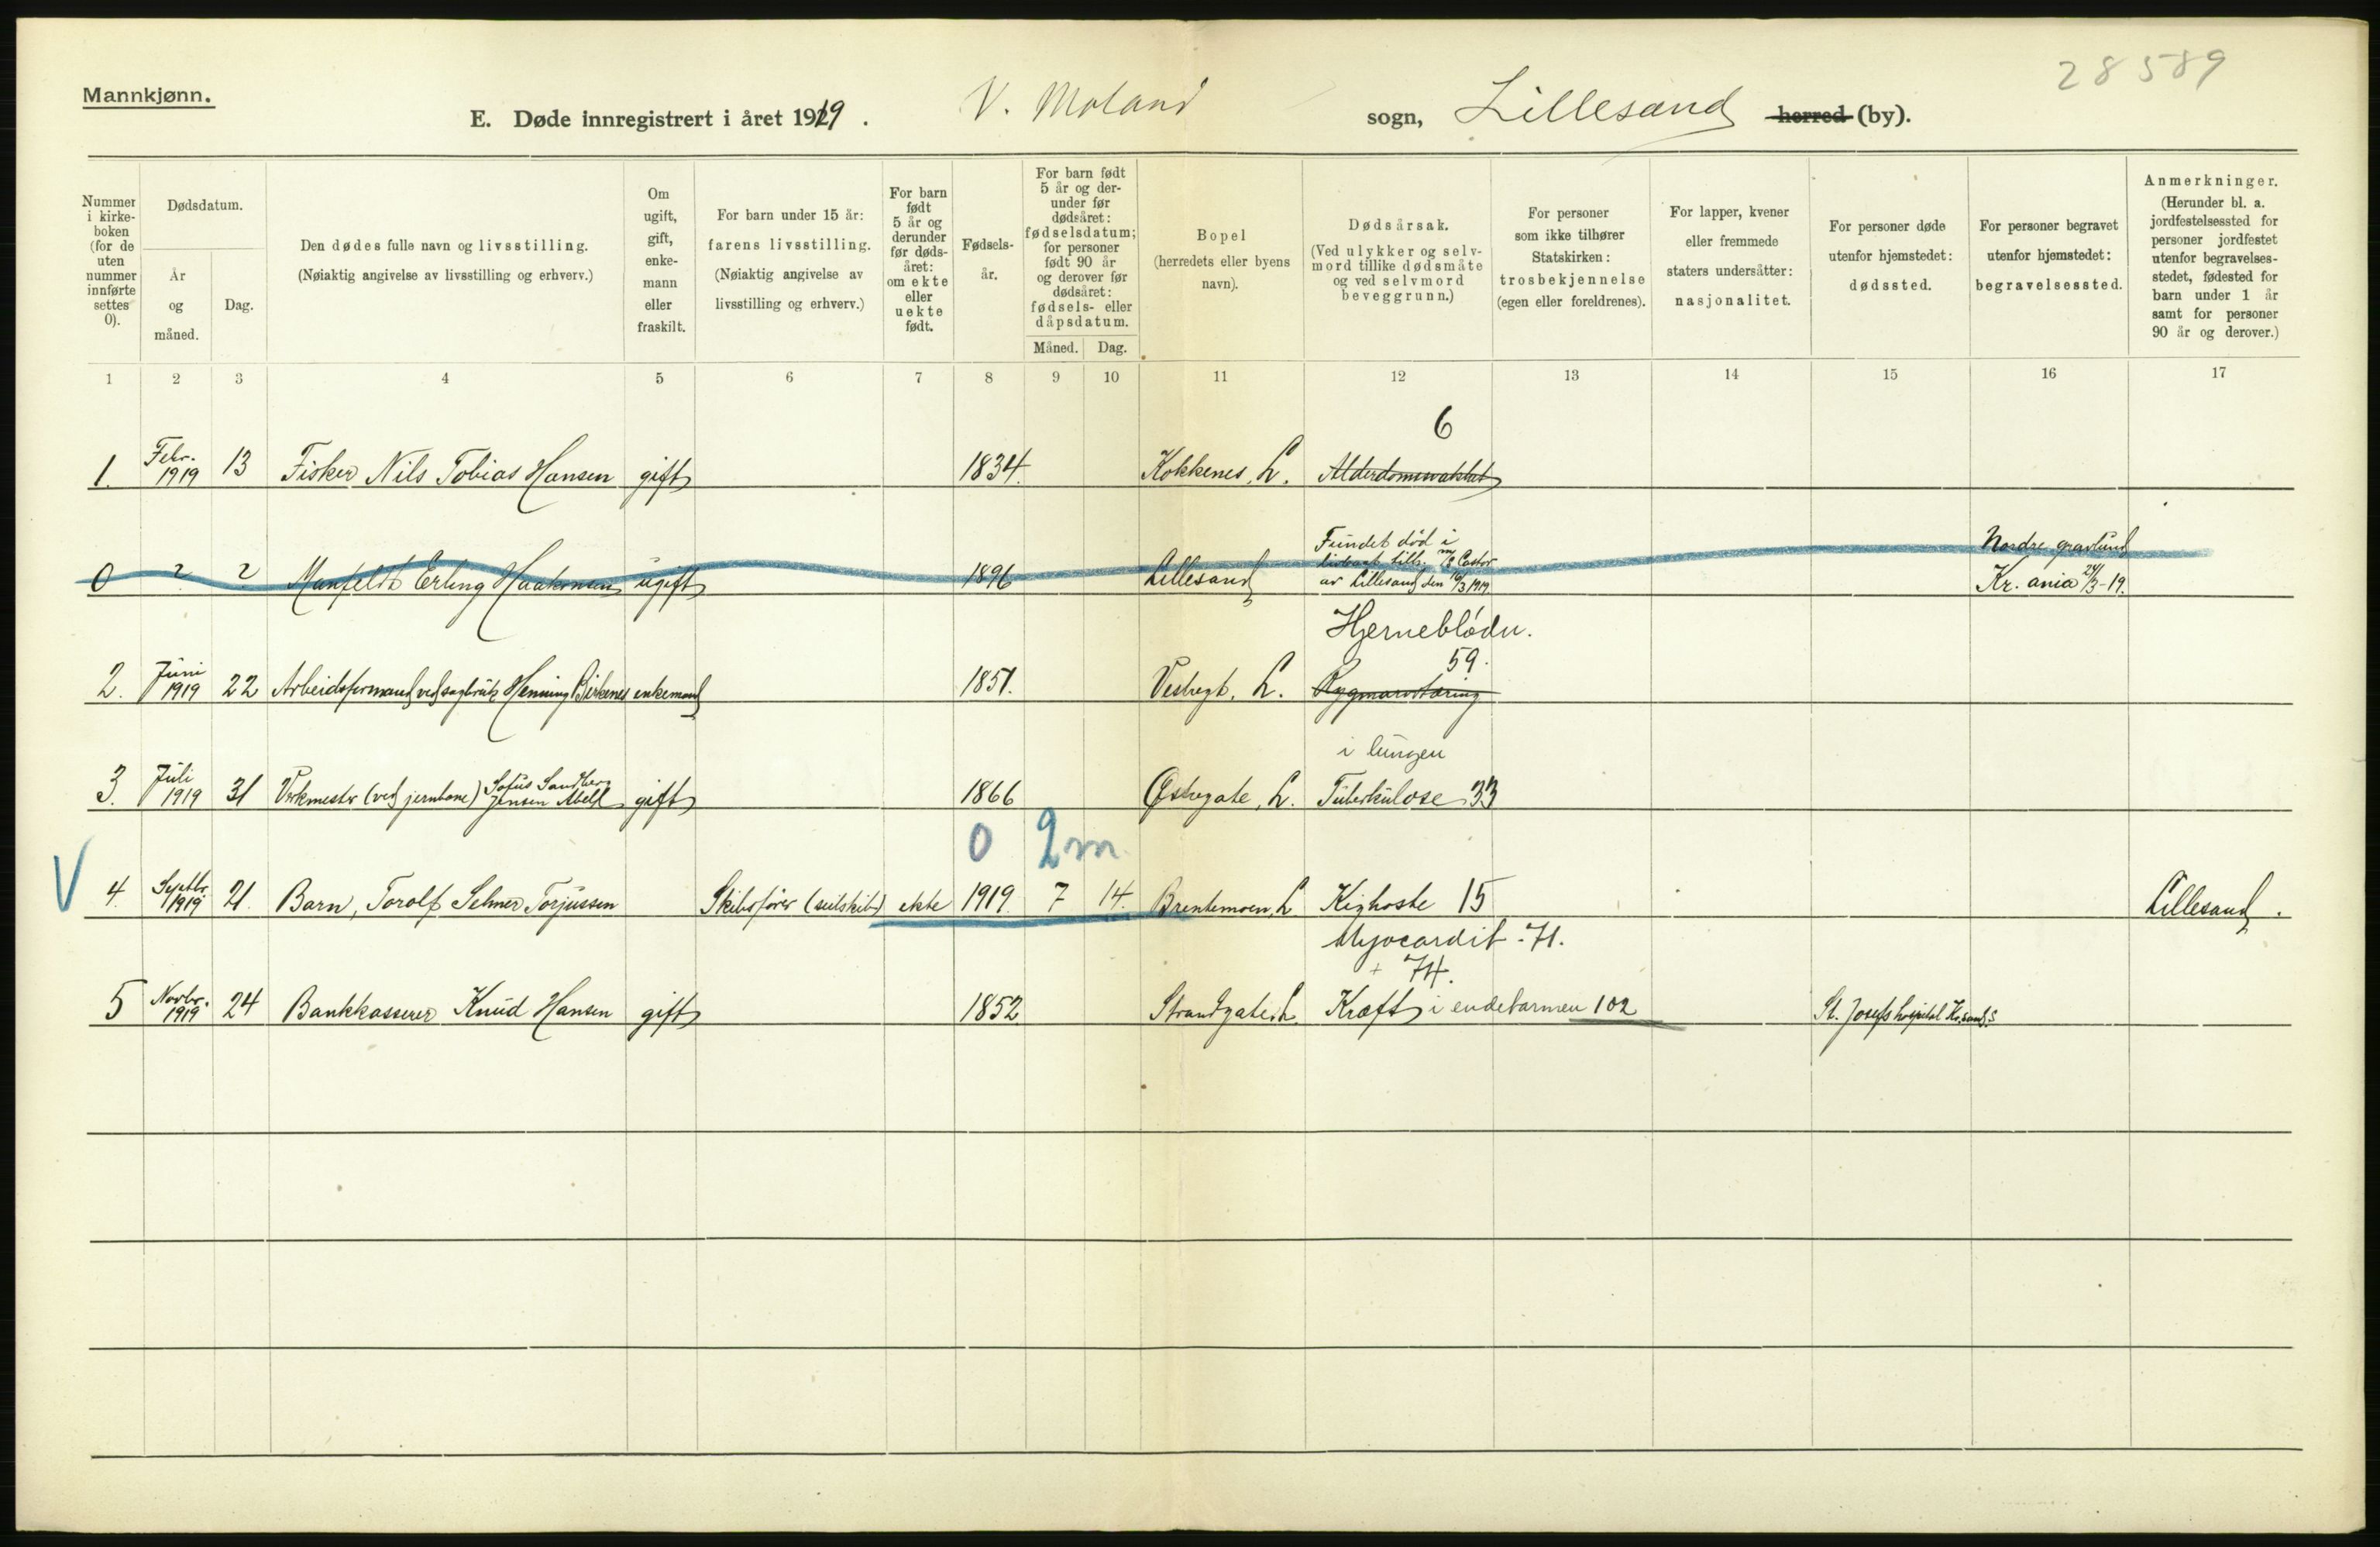 28589
Mannkjønn.
E. Døde innregistrert i året 1919. V. Moland sogn, Lillesand herred (by).
Nummer i kirke-boken (for de uten nummer innførte settes 0).
Dødsdatum.
År og måned.
Dag.
Den dødes fulle navn og livsstilling.
(Nøiaktig angivelse av livsstilling og erhverv.)
Om ugift, gift, enke-mann eller fraskilt.
For barn under 15 år:
farens livsstilling.
(Nøiaktig angivelse av livsstilling og erhverv.)
For barn født 5 år og derunder før døds-året: om ekte eller uekte født.
Fødsels-år.
For barn født 5 år og der-under før dødsåret: fødselsdatum; for personer født 90 år og derover før dødsåret: fødsels- eller dåpsdatum.
Måned. Dag.
Bopel
(herredets eller byens navn).
Dødsårsak.
(Ved ulykker og selv-mord tillike dødsmåte og ved selvmord beveggrunn.)
For personer som ikke tilhører Statskirken:
trosbekjennelse
(egen eller foreldrenes).
For lapper, kvener eller fremmede staters undersåtter:
nasjonalitet.
For personer døde utenfor hjemstedet:
dødssted.
For personer begravet utenfor hjemstedet:
begravelsessted.
Anmerkninger.
(Herunder bl. a. jordfestelsessted for personer jordfestet utenfor begravelses-stedet, fødested for barn under 1 år samt for personer 90 år og derover.)
1 2 3 4 5 6 7 8 9 10 11 12 13 14 15 16 17
6
1. Febr. 1919 13 Fisker Nils Tobias Hansen gift 1834. Kokkenes, L. Alderdomssvakhet
Fundet død i
0 ? ? Manfeldt Erling Haakonsen ugift 1896 Lillesand Castor
av Lillesand den 16/3 1919.
Nordre gravlund
Kr.ania 24/3-19.
Hjerneblødn.
59.
2. Juni 1919 22 Arbeidsformand ved sagbruk Henning Birkenes enkemand 1851. Vestregt. L. Rygmarvstæring
i lungen
3. Juli 1919 31 Verkmester (ved jernbane) Sofus Sandberg Jensen Abell gift 1866 Østregate, L. Tuberkulose 33
0 2 m.
V 4. Septbr. 1919 21. Barn, Torolf Selmer Torjussen Skibsfører (seilskib) ekte 1919. 7 14. Brentemoen, L Kighoste 15 Lillesand.
Myocardit - 71.
+ 74.
5 Novbr. 1919 24 Bankkasserer Knud Hansen gift 1852. Strandgate, L. Kræft i endetarmen 102 St. Josefs hospital Kr.sand S